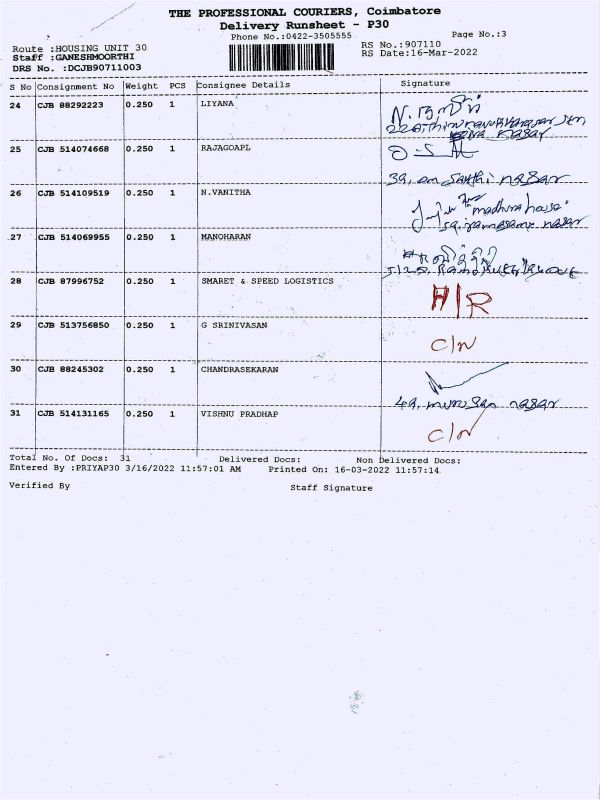 THE PROFESSIONAL COURIERS, Coimbatore
Delivery Runsheet - P30
Phone No.:0422-3505555
Page No.:3
Route :HOUSING UNIT 30
RS No.:907110
Staff :GANESHMOORTHI
RS Date:16-Mar-2022
DRS No. :DCJB90711003
S No Consignment No Weight PCS Consignee Details Signature
24 CJB 88292223 0.250 1 LIYANA N.
nagar
25 CJB 514074668 0.250 1 RAJAGOAPL
39, om Sakthi nagar
26 CJB 514109519 0.250 1 N.VANITHA "madhura house"
59, ramasamy nagar
27 CJB 514069955 0.250 1 MANOHARAN
28 CJB 87996752 0.250 1 SMARET & SPEED LOGISTICS H/R
29 CJB 513756850 0.250 1 G SRINIVASAN C/N
30 CJB 88245302 0.250 1 CHANDRASEKARAN
49, murugan nagar
31 CJB 514131165 0.250 1 VISHNU PRADHAP C/N
Total No. Of Docs: 31 Delivered Docs: Non Delivered Docs:
Entered By :PRIYAP30 3/16/2022 11:57:01 AM Printed On: 16-03-2022 11:57:14
Verified By Staff Signature